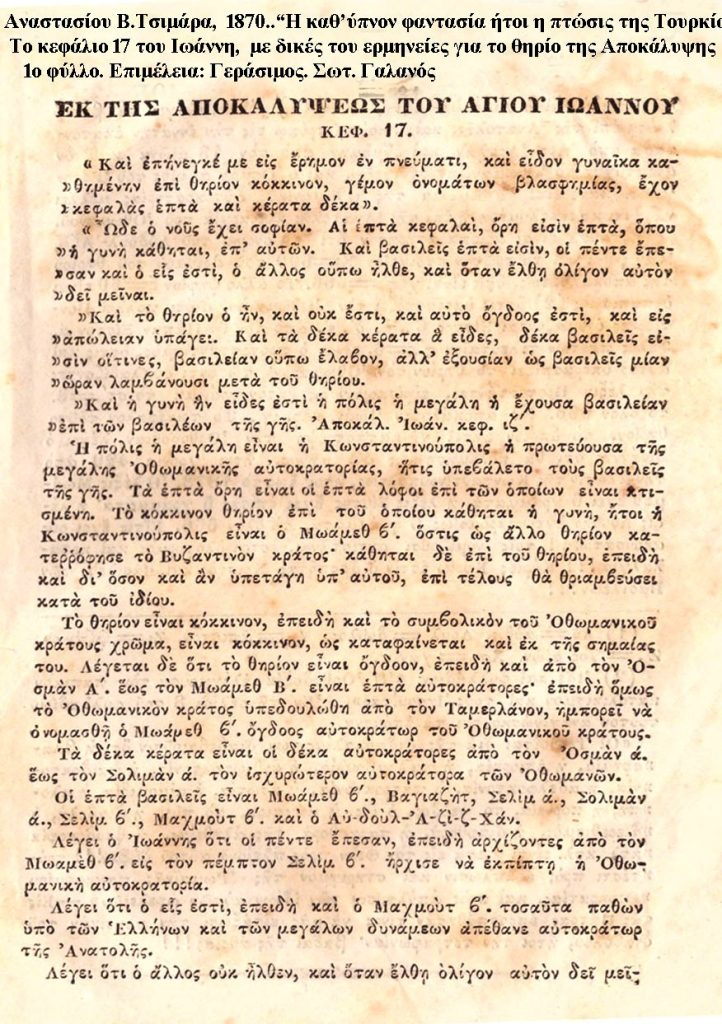 Αναστασίου Β.Τσιμάρα, 1870..“Η καθ’ύπνον φαντασία ήτοι η πτώσις της Τουρκί
Το κεφάλιο 17 του Ιωάννη, με δικές του ερμηνείες για το θηρίο της Αποκάλυψης
1ο φύλλο. Επιμέλεια: Γεράσιμος. Σωτ. Γαλανός
ΕΚ ΤΗΣ ΑΠΟΚΑΛΥΨΕΩΣ ΤΟΥ ΑΓΙΟΥ ΙΩΑΝΝΟΥ
ΚΕΦ. 17.
« Καὶ ἐπήνεγκέ με εἰς ἔρημον ἐν πνεύματι, καὶ εἶδον γυναῖκα κα-
»θημένην ἐπὶ θηρίον κόκκινον, γέμον ὀνομάτων βλασφημίας, ἔχον
»κεφαλὰς ἑπτὰ καὶ κέρατα δέκα».
« Ὧδε ὁ νοῦς ἔχει σοφίαν. Αἱ ἑπτὰ κεφαλαὶ, ὄρη εἰσὶν ἑπτὰ, ὅπου
»ἡ γυνὴ κάθηται, ἐπ’ αὐτῶν. Καὶ βασιλεῖς ἑπτά εἰσιν, οἱ πέντε ἔπε-
»σαν καὶ ὁ εἷς ἐστὶ, ὁ ἄλλος οὔπω ἦλθε, καὶ ὅταν ἔλθῃ ὀλίγον αὐτὸν
»δεῖ μεῖναι.
»Καὶ τὸ θηρίον ὁ ἦν, καὶ οὐκ ἔστι, καὶ αὐτὸ ὄγδοος ἐστὶ, καὶ εἰς
»ἀπώλειαν ὑπάγει. Καὶ τὰ δέκα κέρατα ἃ εἶδες, δέκα βασιλεῖς εἰ-
»σὶν οἵτινες, βασιλείαν οὔπω ἔλαβον, ἀλλ’ ἐξουσίαν ὡς βασιλεῖς μίαν
»ὥραν λαμβάνουσι μετὰ τοῦ θηρίου.
»Καὶ ἡ γυνὴ ἣν εἶδες ἐστὶ ἡ πόλις ἡ μεγάλη ἡ ἔχουσα βασιλείαν
»ἐπὶ τῶν βασιλέων τῆς γῆς. Ἀποκάλ. Ἰωάν. κεφ. ιζ΄.
Ἡ πόλις ἡ μεγάλη εἶναι ἡ Κωνσταντινούπολις ἡ πρωτεύουσα τῆς
μεγάλης Ὀθωμανικῆς αὐτοκρατορίας, ἥτις ὑπεβάλετο τοὺς βασιλεῖς
τῆς γῆς. Τὰ ἑπτὰ ὄρη εἶναι οἱ ἑπτὰ λόφοι ἐπὶ τῶν ὁποίων εἶναι κτι-
σμένη. Τὸ κόκκινον θηρίον ἐπὶ τοῦ ὁποίου κάθηται ἡ γυνὴ, ἤτοι ἡ
Κωνσταντινούπολις εἶναι ὁ Μωάμεθ β΄. ὅστις ὡς ἄλλο θηρίον κα-
τεῤῥόφησε τὸ Βυζαντινὸν κράτος· κάθηται δὲ ἐπὶ τοῦ θηρίου, ἐπειδὴ
καὶ δι’ ὅσον καὶ ἂν ὑπετάγη ὑπ’ αὐτοῦ, ἐπὶ τέλους θὰ θριαμβεύσει
κατὰ τοῦ ἰδίου.
Τὸ θηρίον εἶναι κόκκινον, ἐπειδὴ καὶ τὸ συμβολικὸν τοῦ Ὀθωμανικοῦ
κράτους χρῶμα, εἶναι κόκκινον, ὡς καταφαίνεται καὶ ἐκ τῆς σημαίας
του. Λέγεται δὲ ὅτι τὸ θηρίον εἶναι ὄγδοον, ἐπειδὴ καὶ ἀπὸ τὸν Ὀ-
σμὰν Α΄. ἕως τὸν Μωάμεθ Β΄. εἶναι ἑπτὰ αὐτοκράτορες· ἐπειδὴ ὅμως
τὸ Ὀθωμανικὸν κράτος ὑπεδουλώθη ἀπὸ τὸν Ταμερλάνον, ἠμπορεῖ νὰ
ὀνομασθῇ ὁ Μωάμεθ β΄. ὄγδοος αὐτοκράτωρ τοῦ Ὀθωμανικοῦ κράτους.
Τὰ δέκα κέρατα εἶναι οἱ δέκα αὐτοκράτορες ἀπὸ τὸν Ὀσμὰν ά.
ἕως τὸν Σολιμὰν ά. τὸν ἰσχυρώτερον αὐτοκράτορα τῶν Ὀθωμανῶν.
Οἱ ἑπτὰ βασιλεῖς εἶναι Μωάμεθ β΄., Βαγιαζὴτ, Σελὶμ ά., Σολιμὰν
ά., Σελὶμ β΄., Μαχμοὺτ β΄. καὶ ὁ Αὐ-δοὺλ-Ἀ-ζὶ-ζ-Χάν.
Λέγει ὁ Ἰωάννης ὅτι οἱ πέντε ἔπεσαν, ἐπειδὴ ἀρχίζοντες ἀπὸ τὸν
Μωαμὲθ β΄. εἰς τὸν πέμπτον Σελὶμ β΄. ἤρχισε νὰ ἐκπίπτῃ ἡ Ὀθω-
μανικὴ αὐτοκρατορία.
Λέγει ὅτι ὁ εἷς ἐστὶ, ἐπειδὴ καὶ ὁ Μαχμοὺτ β΄. τοσαῦτα παθὼν
ὑπὸ τῶν Ἑλλήνων καὶ τῶν μεγάλων δυνάμεων ἀπέθανε αὐτοκράτωρ
τῆς Ἀνατολῆς.
Λέγει ὅτι ὁ ἄλλος οὐκ ἦλθεν, καὶ ὅταν ἔλθῃ ὀλίγον αὐτὸν δεῖ μεῖ-